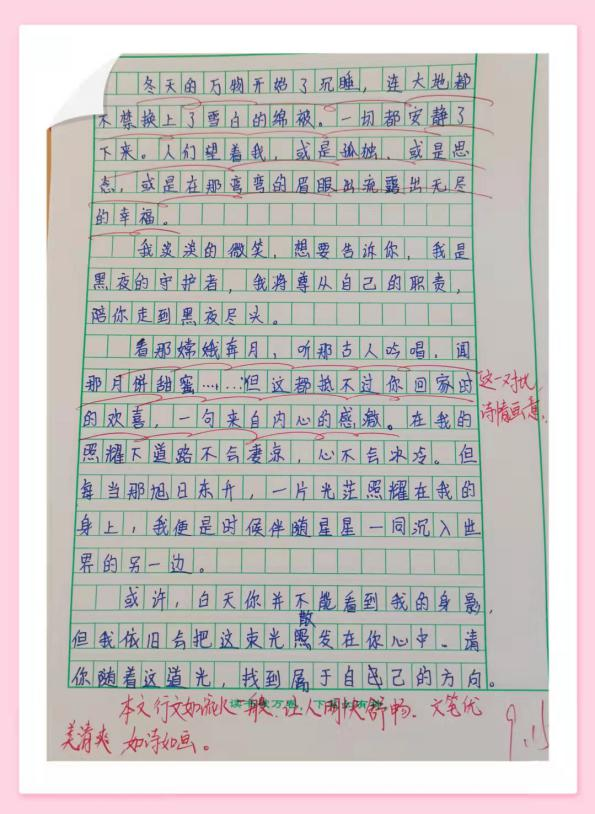 冬天的万物开始了沉睡，连大地都
不禁换上了雪白的绵被。一切都安静了
下来。人们望着我，或是孤独，或是思
念，或是在那弯弯的眉眼出流露出无尽
的幸福。
我淡淡的微笑，想要告诉你，我是
黑夜的守护者，我将尊从自己的职责，
陪你走到黑夜尽头。
看那嫦娥奔月，听那古人吟唱，闻
那月饼甜蜜……但这都抵不过你回家时
这一对比，
诗情画意。
的欢喜，一句来自内心的感激。在我的
照耀下道路不会凄凉，心不会冰冷。但
每当那旭日东升，一片光茫照耀在我的
身上，我便是时候伴随星星一同沉入世
界的另一边。
或许，白天你并不能看到我的身影，
散
但我依旧会把这束光照发在你心中。请
你随着这道光，找到属于自己的方向。
本文行文如流水一般，让人明快舒畅。文笔优
美清爽 如诗如画。
9.15